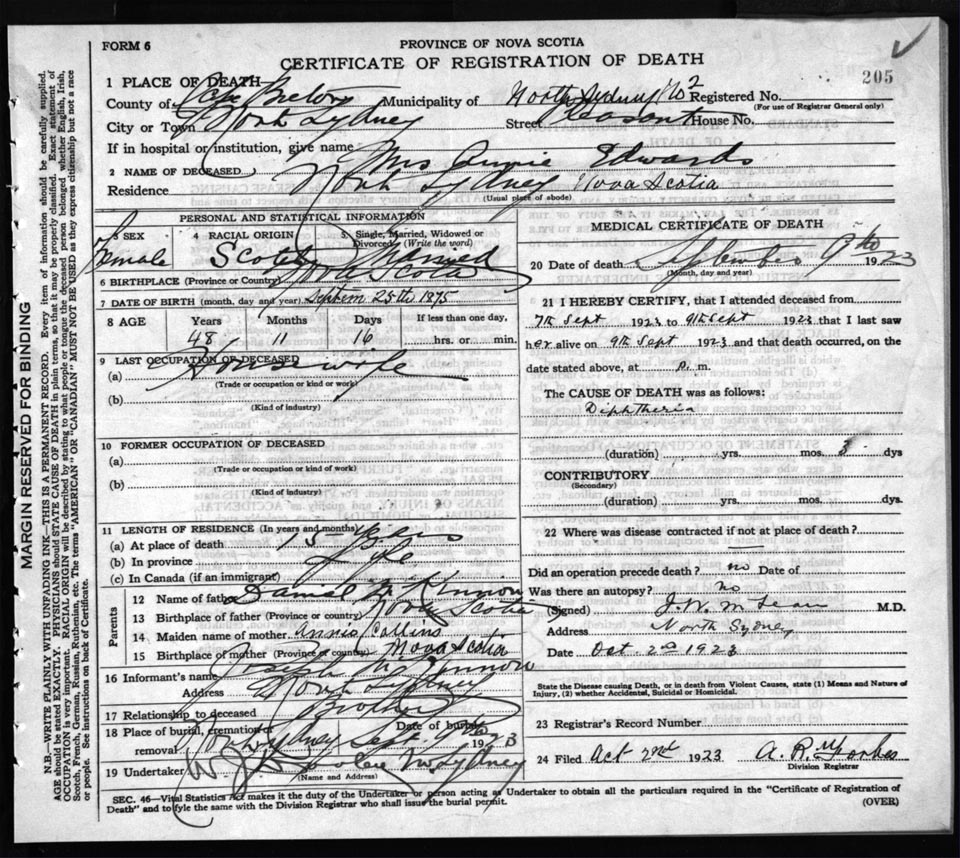 FORM 6
PROVINCE OF NOVA SCOTIA
CERTIFICATE OF REGISTRATION OF DEATH
205
1 PLACE OF DEATH
County of Cape Breton Municipality of North Sydney No 2 Registered No.
(For use of Registrar General only)
City or Town North Sydney Street Pleasant House No.
If in hospital or institution, give name
2 NAME OF DECEASED Mrs Annie Edwards
Residence North Sydney Nova Scotia
(Usual place of abode)
PERSONAL AND STATISTICAL INFORMATION
3 SEX 4 RACIAL ORIGIN 5 Single, Married, Widowed or Divorced (Write the word)
Female Scotch Married
6 BIRTHPLACE (Province or Country) Nova Scotia
7 DATE OF BIRTH (month, day and year) Septem 25th 1875
8 AGE Years Months Days If less than one day,
48 11 16 hrs. or min.
9 LAST OCCUPATION OF DECEASED
(a) Housewife
(Trade or occupation or kind or work)
(b)
(Kind of industry)
10 FORMER OCCUPATION OF DECEASED
(a)
(Trade or occupation or kind or work)
(b)
(Kind of industry)
11 LENGTH OF RESIDENCE (In years and months)
(a) At place of death 15 Years
(b) In province Life
(c) In Canada (if an immigrant)
Parents
12 Name of father Daniel McKinnon
13 Birthplace of father (Province or country) Nova Scotia
14 Maiden name of mother Annie Collins
15 Birthplace of mother (Province or country) Nova Scotia
16 Informant's name Joseph McKinnon
Address North Sydney
17 Relationship to deceased Brother
18 Place of burial, cremation or removal Date of burial
North Sydney Sept 9th 1923
19 Undertaker N Sydney
(Name and Address)
MEDICAL CERTIFICATE OF DEATH
20 Date of death September 9th 1923
(Month, day and year)
21 I HEREBY CERTIFY, that I attended deceased from
7th Sept 1923 to 9th Sept 1923 that I last saw
her alive on 9th Sept 1923 and that death occurred, on the
date stated above, at P. m.
The CAUSE OF DEATH was as follows:
Diphtheria
(duration) yrs. mos. 3 dys
CONTRIBUTORY
(Secondary)
(duration) yrs. mos. dys.
22 Where was disease contracted if not at place of death?
Did an operation precede death? no Date of
Was there an autopsy? no
(Signed) J. W. McLean M.D.
Address North Sydney
Date Oct 2nd 1923
State the Disease causing Death, or in death from Violent Causes, state (1) Means and Nature of
Injury, (2) whether Accidental, Suicidal or Homicidal.
23 Registrar's Record Number
24 Filed Oct 2nd 1923 A. R. Forbes
Division Registrar
SEC. 46—Vital Statistics Act makes it the duty of the Undertaker or person acting as Undertaker to obtain all the particulars required in the "Certificate of Registration of
Death" and to fyle the same with the Division Registrar who shall issue the burial permit.
(OVER)
MARGIN RESERVED FOR BINDING
N.B.—WRITE PLAINLY WITH UNFADING INK—THIS IS A PERMANENT RECORD. Every item of information should be carefully supplied.
AGE should be stated EXACTLY. PHYSICIANS should STATE CAUSE OF DEATH in plain terms, so that it may be properly classified. Exact statement of
OCCUPATION is very important. RACIAL ORIGIN will be described by stating to what people or tongue the deceased person belonged whether English, Irish,
Scotch, French, German, Russian, Ruthenian, etc. The terms "AMERICAN" OR "CANADIAN" MUST NOT BE USED as they express citizenship but not a race
or people. See instructions on back of Certificate.